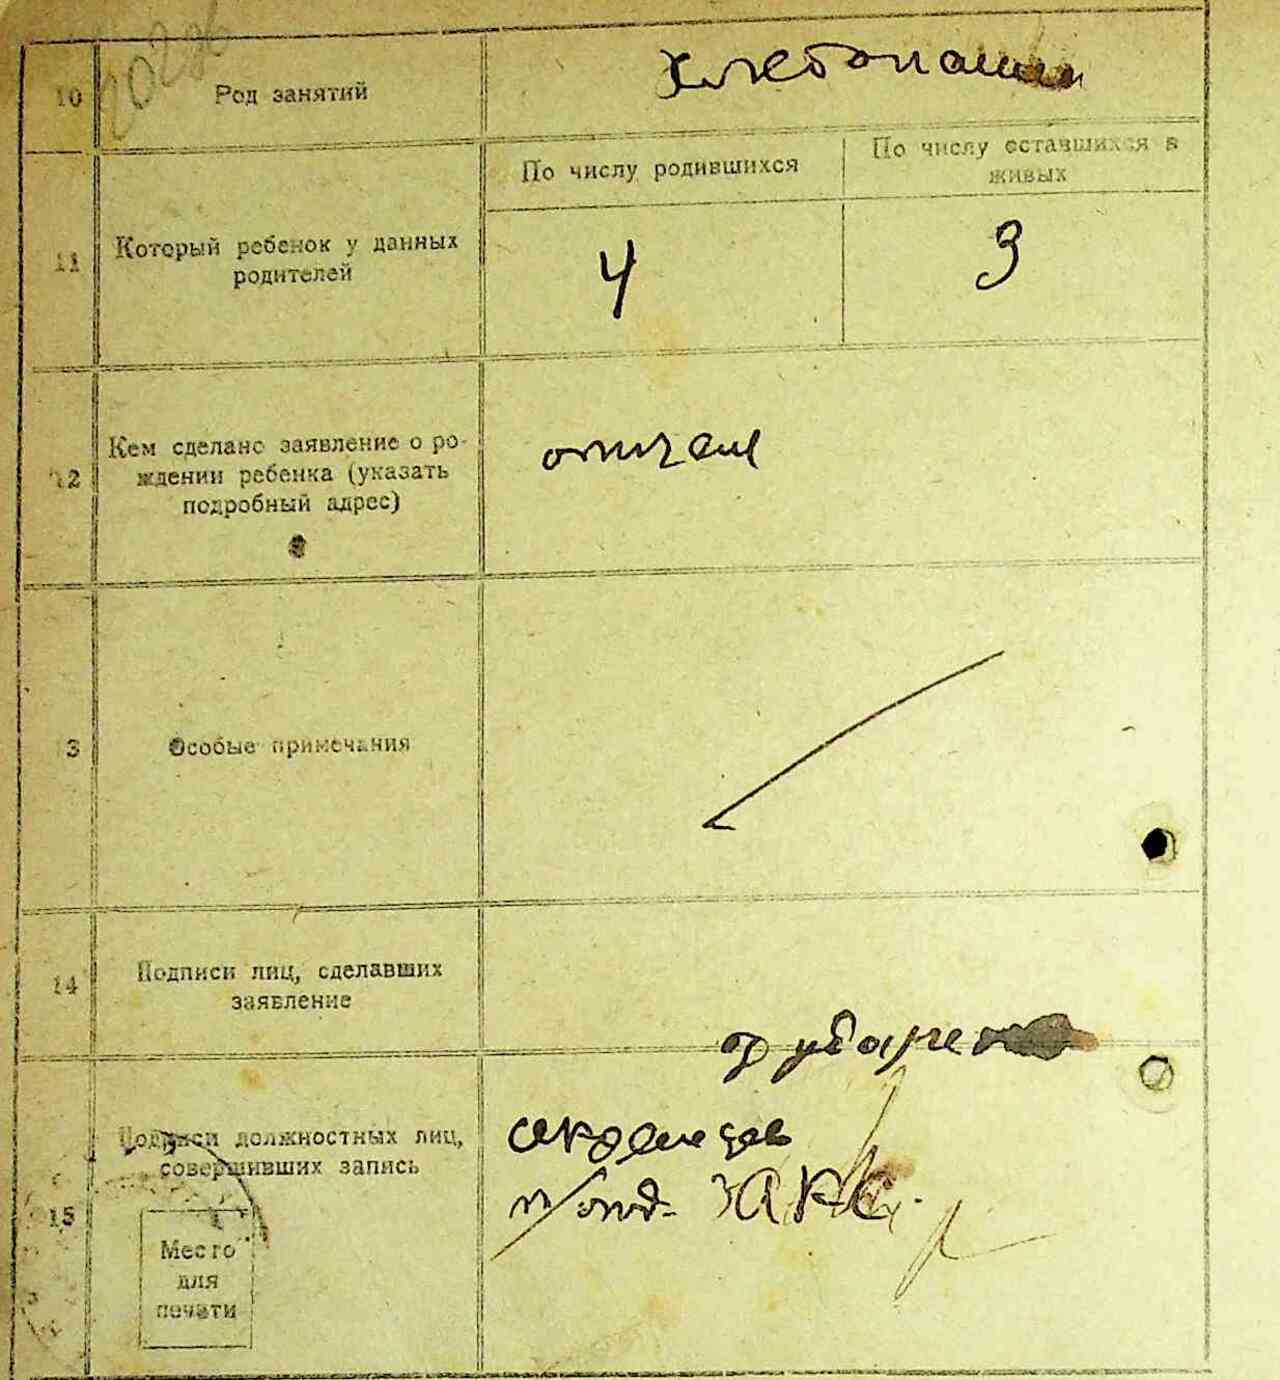 10
Род занятий
Хлебопашец
11
Который ребенок у данных
родителей
По числу родившихся
По числу оставшихся в
живых
4
3
12
Кем сделано заявление о ро-
ждении ребенка (указать
подробный адрес)
отцем
3
Особые примечания
14
Подписи лиц, сделавших
заявление
15
Подписи должностных лиц,
совершивших запись
п/отд. ЗАГС.
Место
для
печати